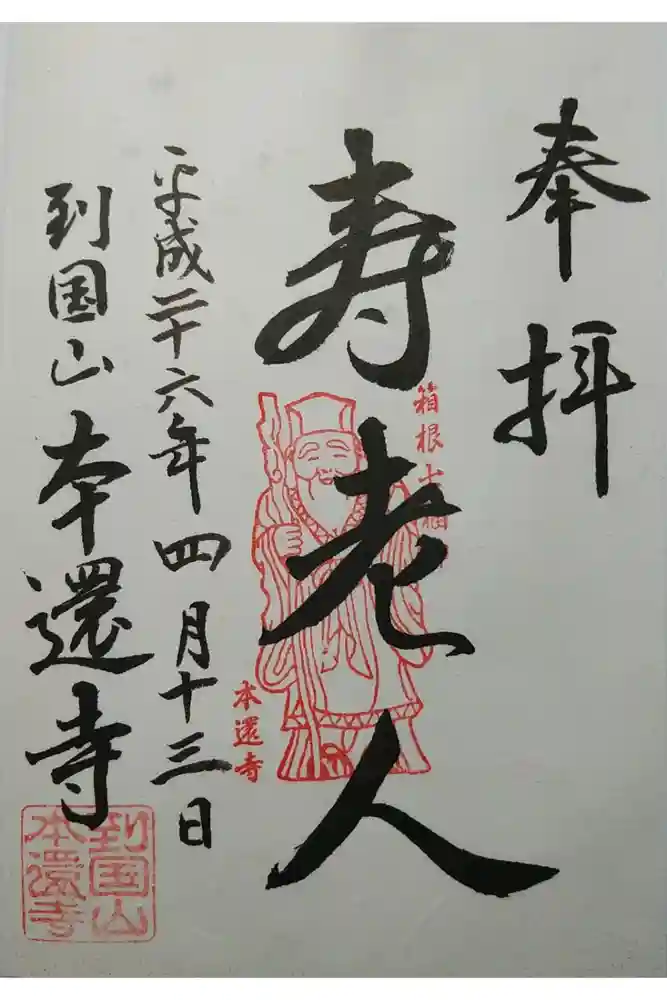 奉拝
寿老人
箱根七福
本還寺
平成二十六年四月十三日
到国山本還寺
到国山
本還寺